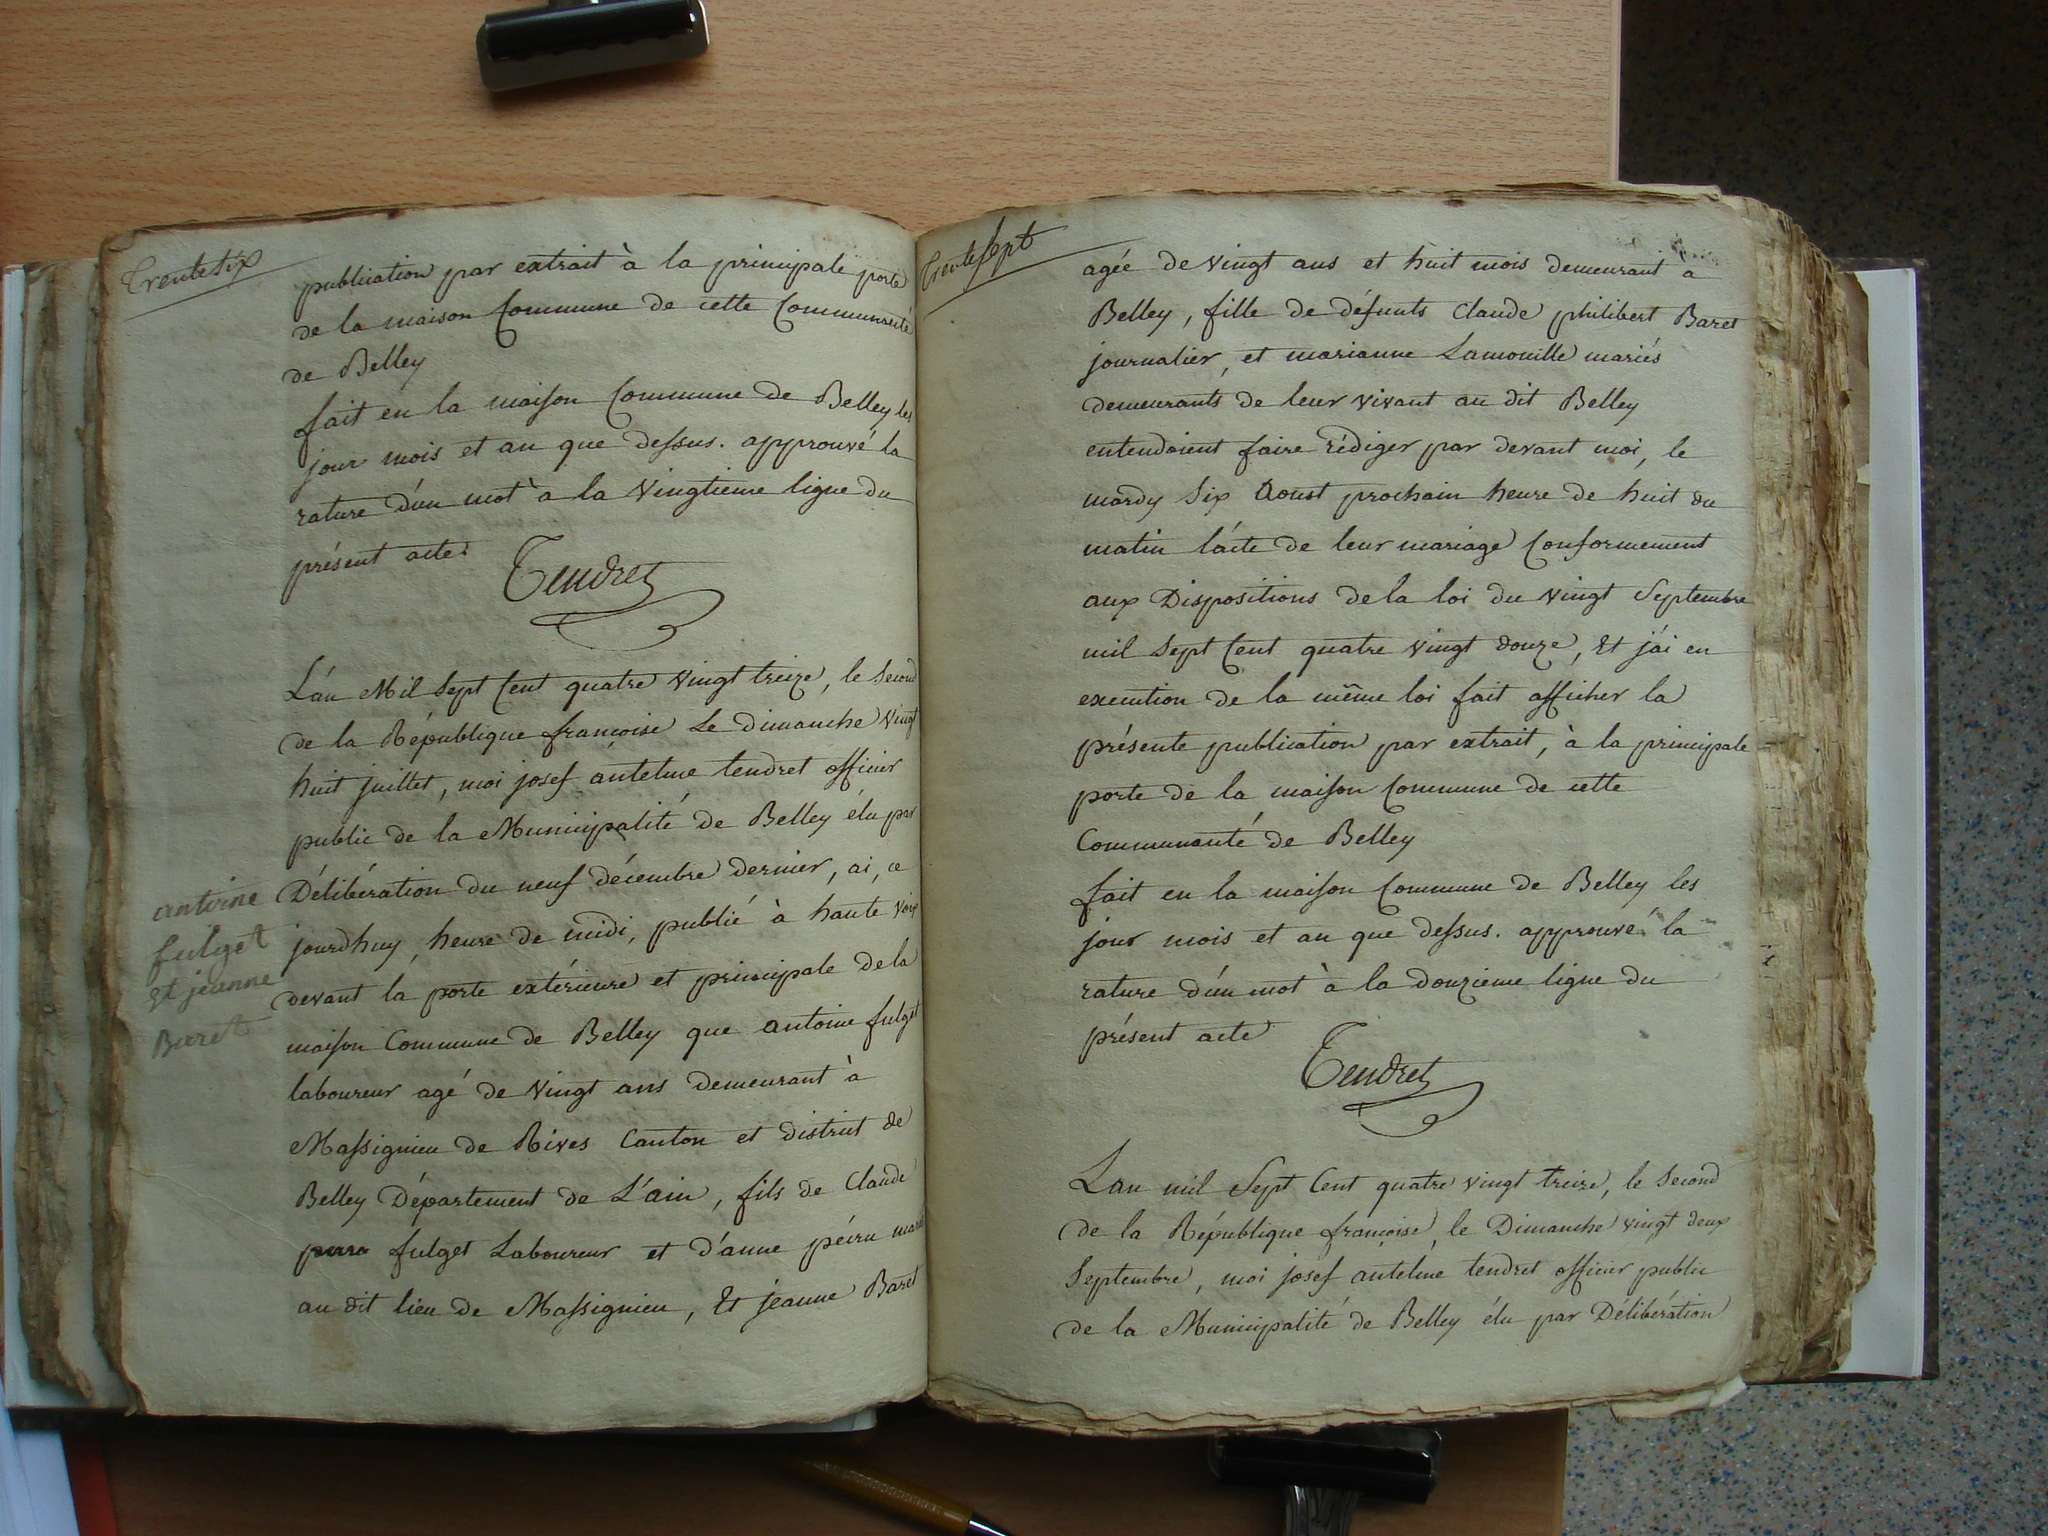 Trente six
publication par extrait à la principale porte
de la maison Commune de cette Communauté
de Belley
fait en la maison Commune de Belley les
jour mois et an que dessus. approuvé la
rature d'un mot à la vingtieme ligne du
présent acte
Tendret
L'an Mil Sept Cent quatre vingt treize, le second
de la République françoise Le dimanche vingt
huit juillet, moi josef antelme tendret officier
public de la Municipalité de Belley élu par
Délibération du neuf décembre dernier, ai, ce
jourdhuy, heure de midi, publié à haute voix
devant la porte extérieure et principale de la
maison Commune de Belley que antoine fulget
laboureur agé de vingt ans demeurant à
Massignieu de Rives Canton et district de
Belley Département de L'ain, fils de Claude
fulget Laboureur et d'anne péiru mariés
au dit lieu de Massignieu, Et jeanne Baret
antoine
fulget
Et jeanne
Baret
Trente sept
agée de vingt ans et huit mois demeurant a
Belley, fille de défunts Claude philibert Baret
journalier, et marianne Lamouille mariés
demeurants de leur vivant au dit Belley
entendoient faire rédiger par devant moi, le
mardy six Aoust prochain heure de huit du
matin l'acte de leur mariage Conformement
aux Dispositions de la loi du vingt Septembre
mil Sept Cent quatre vingt douze, Et j'ai en
execution de la même loi fait afficher la
présente publication par extrait, à la principale
porte de la maison Commune de cette
Communauté de Belley
fait en la maison Commune de Belley les
jour mois et an que dessus. approuvé la
rature d'un mot à la douzieme ligne du
présent acte
Tendret
L'an mil Sept Cent quatre vingt treize, le second
de la République françoise, le Dimanche vingt deux
Septembre, moi josef antelme tendret officier public
de la Municipalité de Belley élu par Délibération